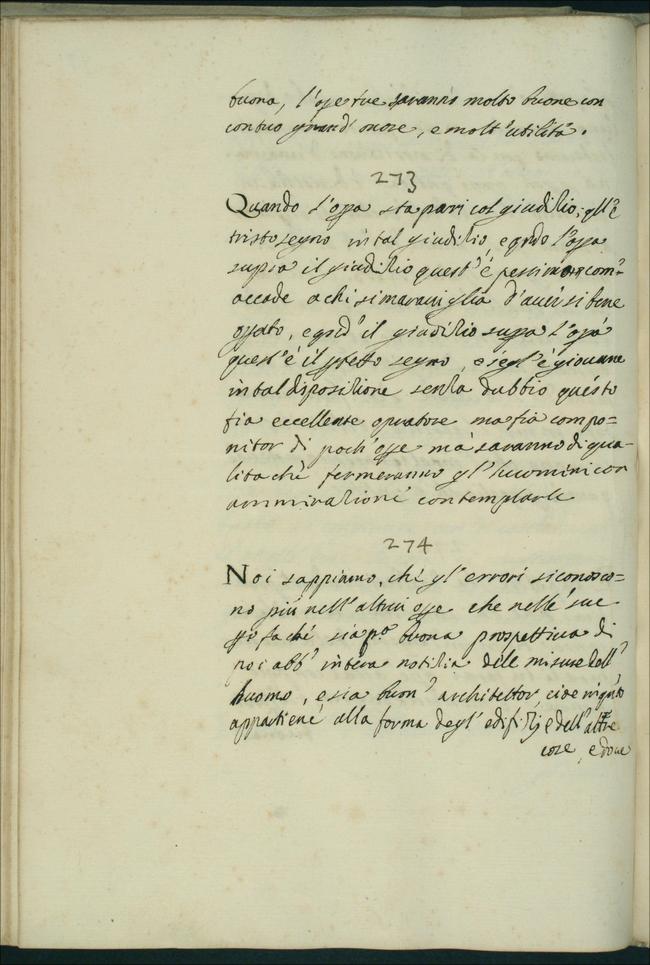 buona, l'oʃe tue saranno molto buone con
con tuo grand' onore, e molt'utilità.
273
Quando l'opa sta pari col giudilio; qll'è
tristo segno in tal giudilio, e qndo l'opa
supra il giudilio quest'è pessimo com'
accade a chi si maraviglia d'aver si bene
opato, e qnd' il giudilio supa l'opa
quest'è il pfetto segno, e se gl'è giovane
in tal disposilione senla dubbio questo
fia eccellente opratore ma fia compo=
nitor di poch'ope ma saranno di qua-
lità chè fermeranno gl'huomini con
ammiralione contemplarle
274
Noi sappiamo, chè gl'errori si conosco=
no più nell'altrui ope che nelle sue
fa chè sia po buona prospettiva di
poi abb' intera notilia delle misure dell'
huomo, e sia buon' architettor, cioè in qnto
appartiene alla forma degl'edifilij e dell'altre
cose, e dove